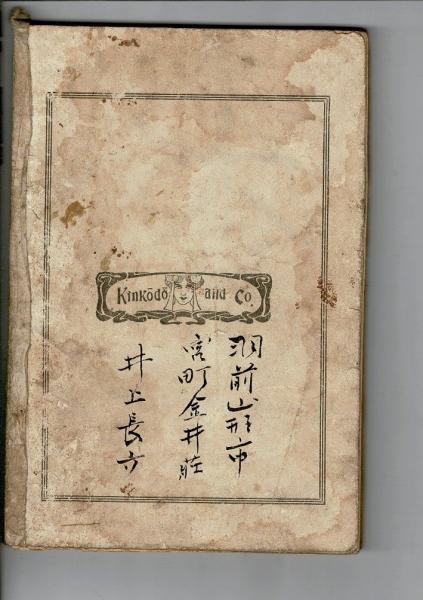 Kinkōdō and Co.
羽前山形市
宮町金井荘
井上長六